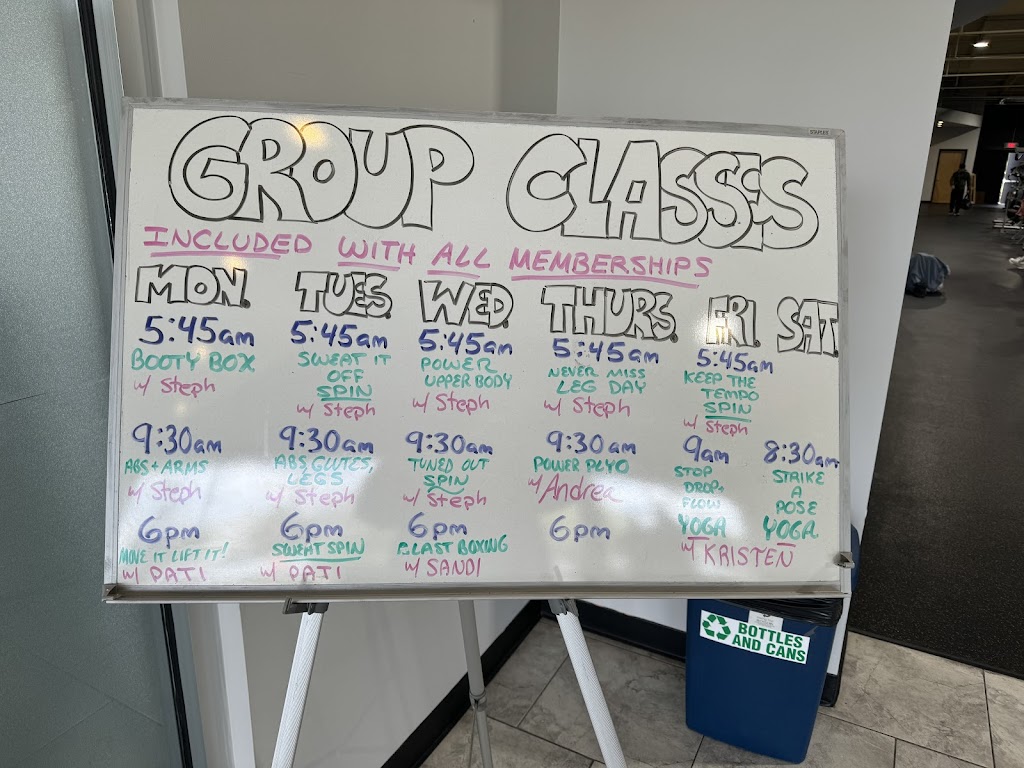 STAPLES
GROUP CLASSES
INCLUDED WITH ALL MEMBERSHIPS
MON.
5:45am
BOOTY BOX
w/ Steph
9:30am
ABS + ARMS
w/ Steph
6pm
MOVE IT LIFT IT!
w/ PATI
TUES.
5:45am
SWEAT IT
OFF
SPIN
w/ Steph
9:30am
ABS, GLUTES,
LEGS
w/ Steph
6pm
SWEAT SPIN
w/ PATI
WED.
5:45am
POWER
UPPER BODY
w/ Steph
9:30am
TUNED OUT
SPIN
w/ Steph
6pm
BLAST BOXING
w/ SANDI
THURS.
5:45am
NEVER MISS
LEG DAY
w/ Steph
9:30am
POWER PLYO
w/ Andrea
6pm
FRI.
5:45am
KEEP THE
TEMPO
SPIN
w/ Steph
9am
STOP
DROP+
FLOW
YOGA
SAT.
8:30am
STRIKE
A
POSE
YOGA
w/ KRISTEN
BOTTLES
AND CANS